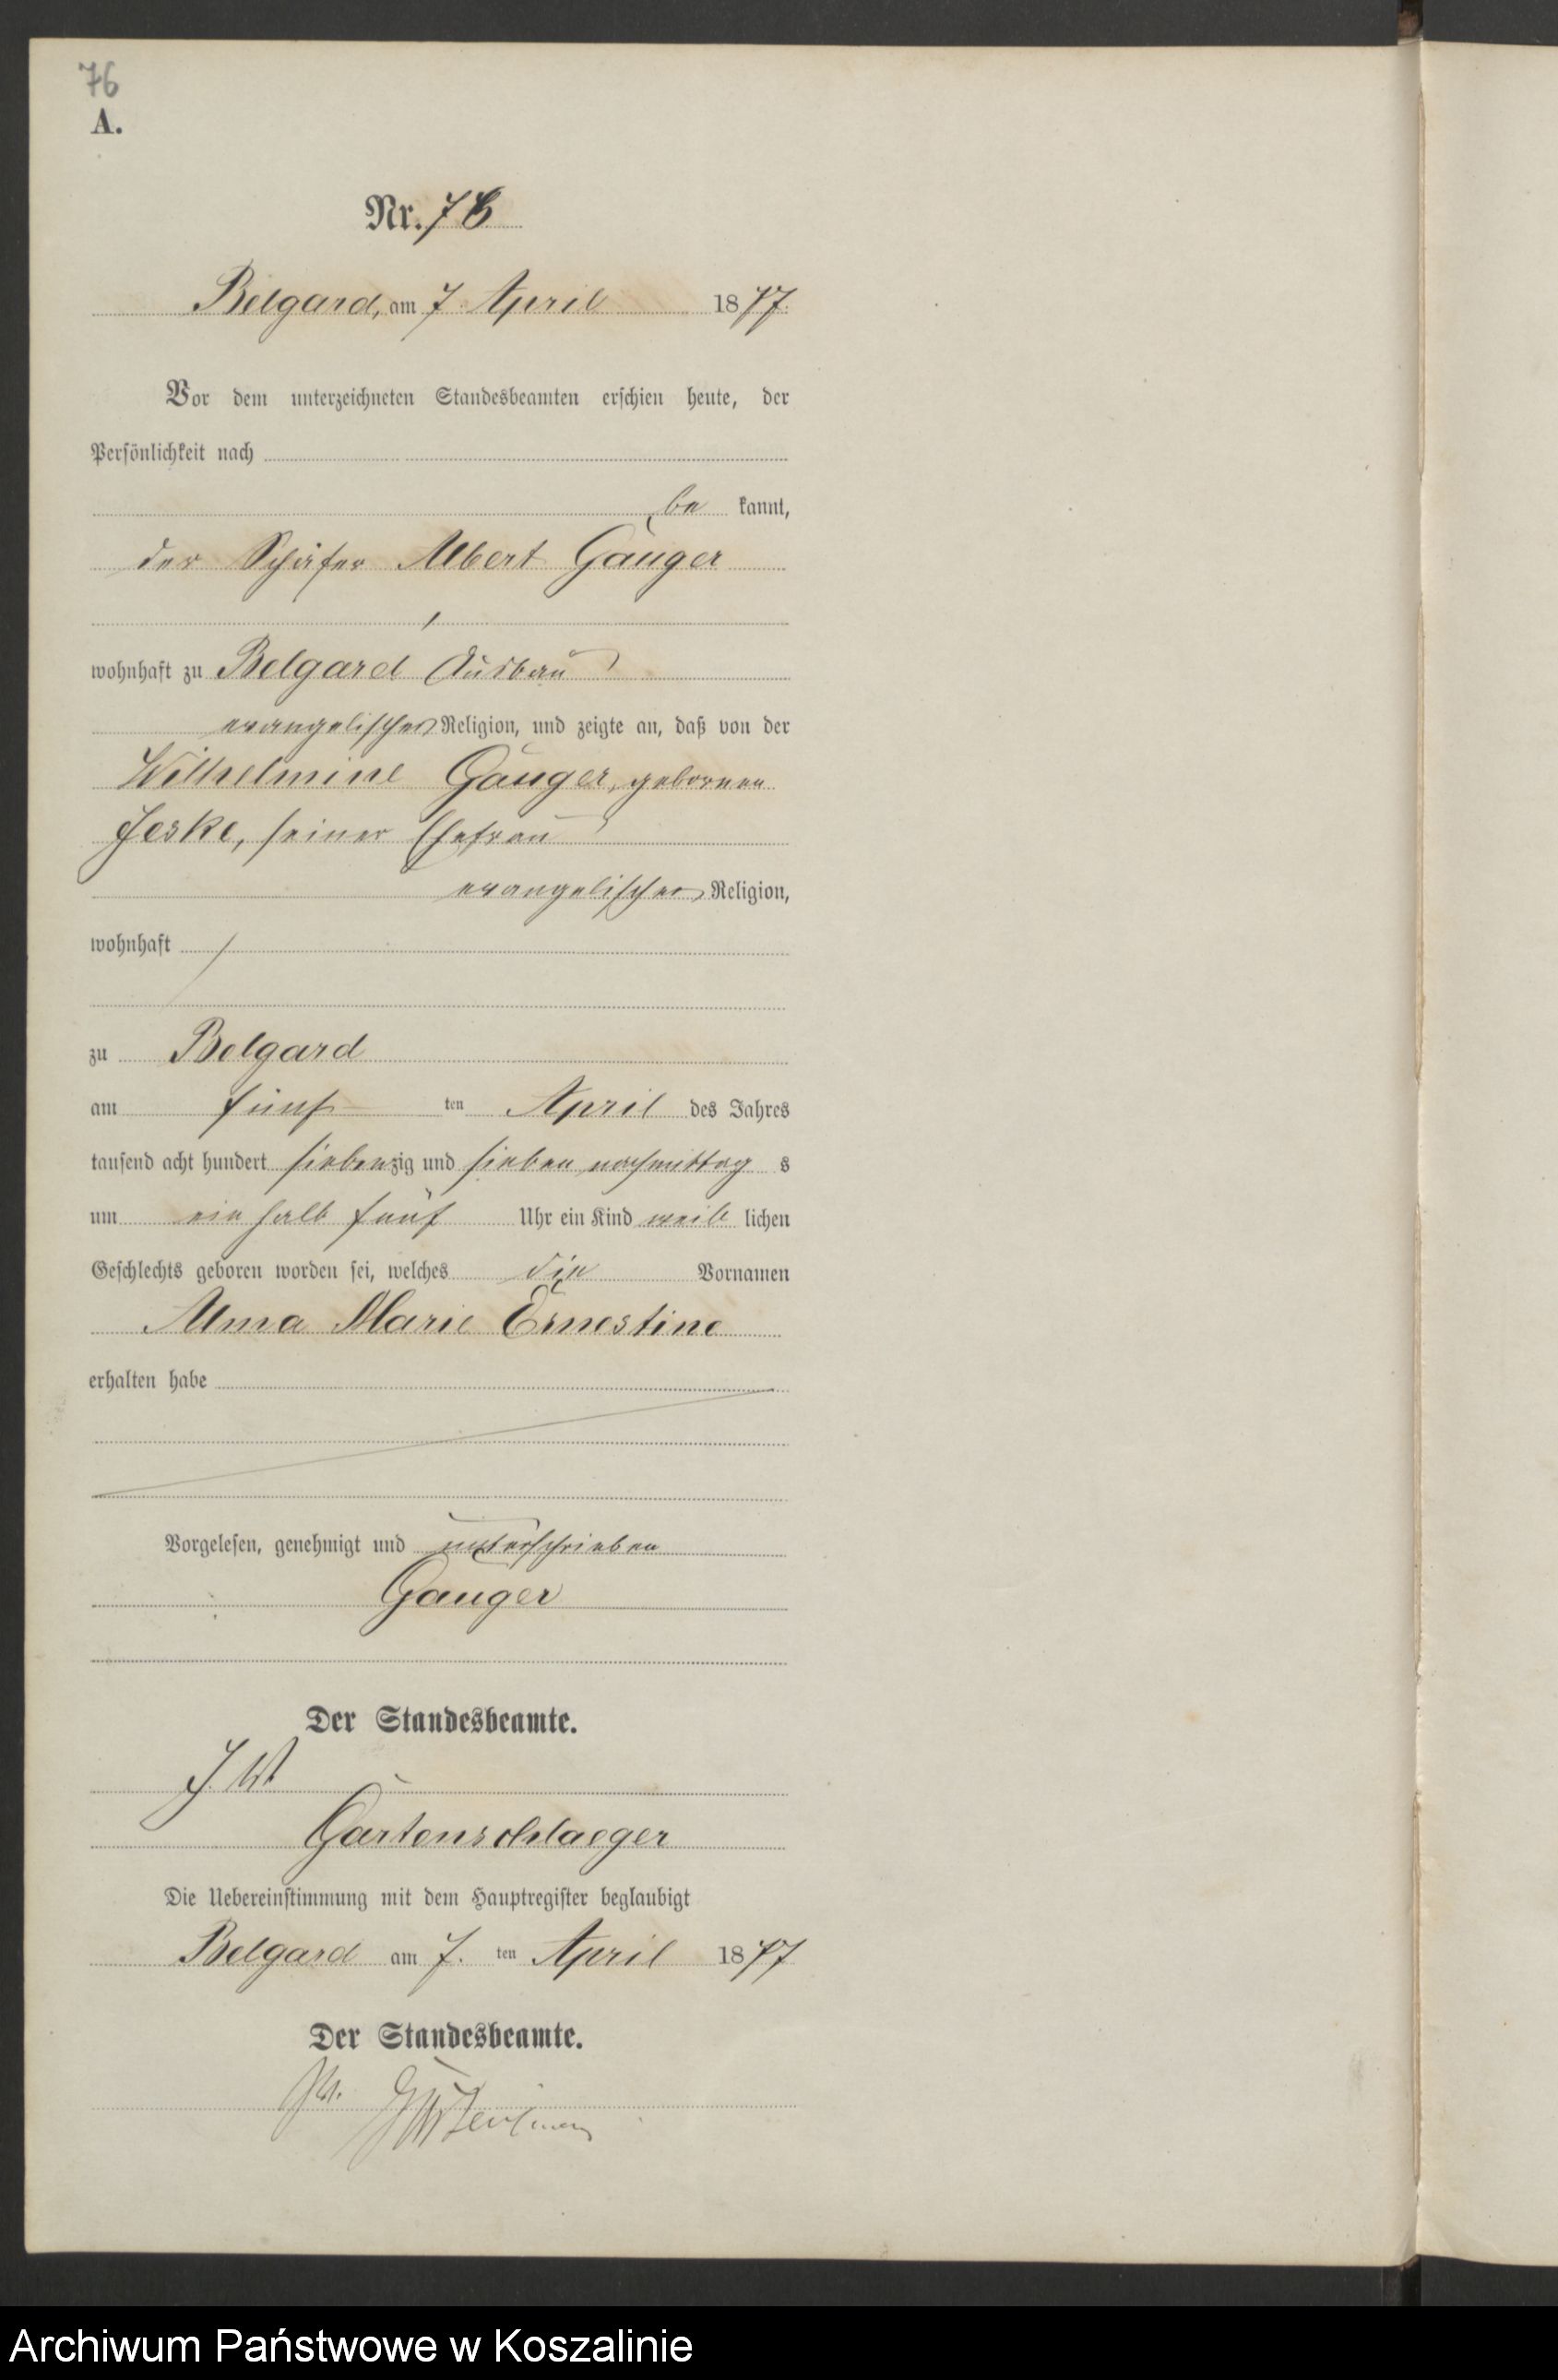 76
A.
Nr. 76
Belgard, am 7 April 1877.
Vor dem unterzeichneten Standesbeamten erschien heute, der
Persönlichkeit nach
be kannt,
der Schäfer Albert Gauger
wohnhaft zu Belgard Ausbau
evangelischer Religion, und zeigte an, daß von der
Wilhelmine Gauger, gebornen
Jeske, seiner Ehefrau
evangelischer Religion,
wohnhaft
zu Belgard
am fünf ten April des Jahres
tausend acht hundert siebenzig und sieben nachmittag s
um ein halb fünf Uhr ein Kind weib lichen
Geschlechts geboren worden sei, welches die Vornamen
Alma Marie Ernestine
erhalten habe
Vorgelesen, genehmigt und unterschrieben
Gauger
Der Standesbeamte.
J. Vt
Gartenschlaeger
Die Uebereinstimmung mit dem Hauptregister beglaubigt
Belgard am 7. ten April 1877
Der Standesbeamte.
Archiwum Państwowe w Koszalinie